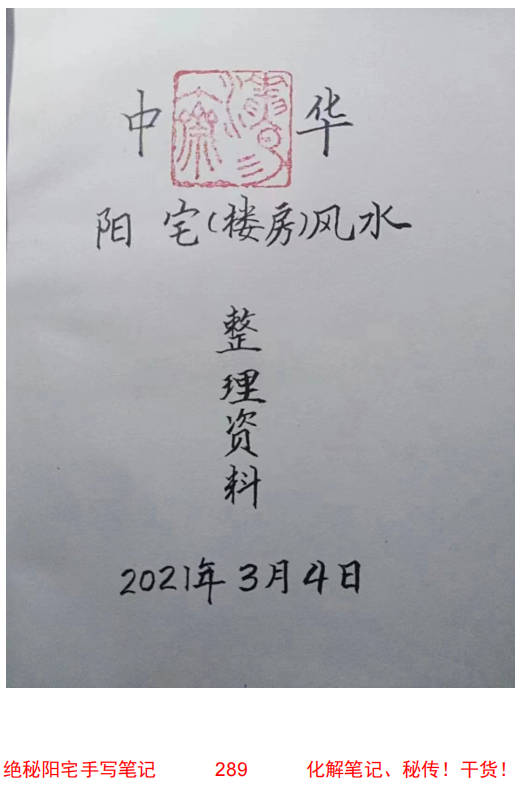 中 华
阳 宅(楼房)风水
整
理
资
料
2021年3月4日
绝秘阳宅手写笔记 289 化解笔记、秘传！干货！